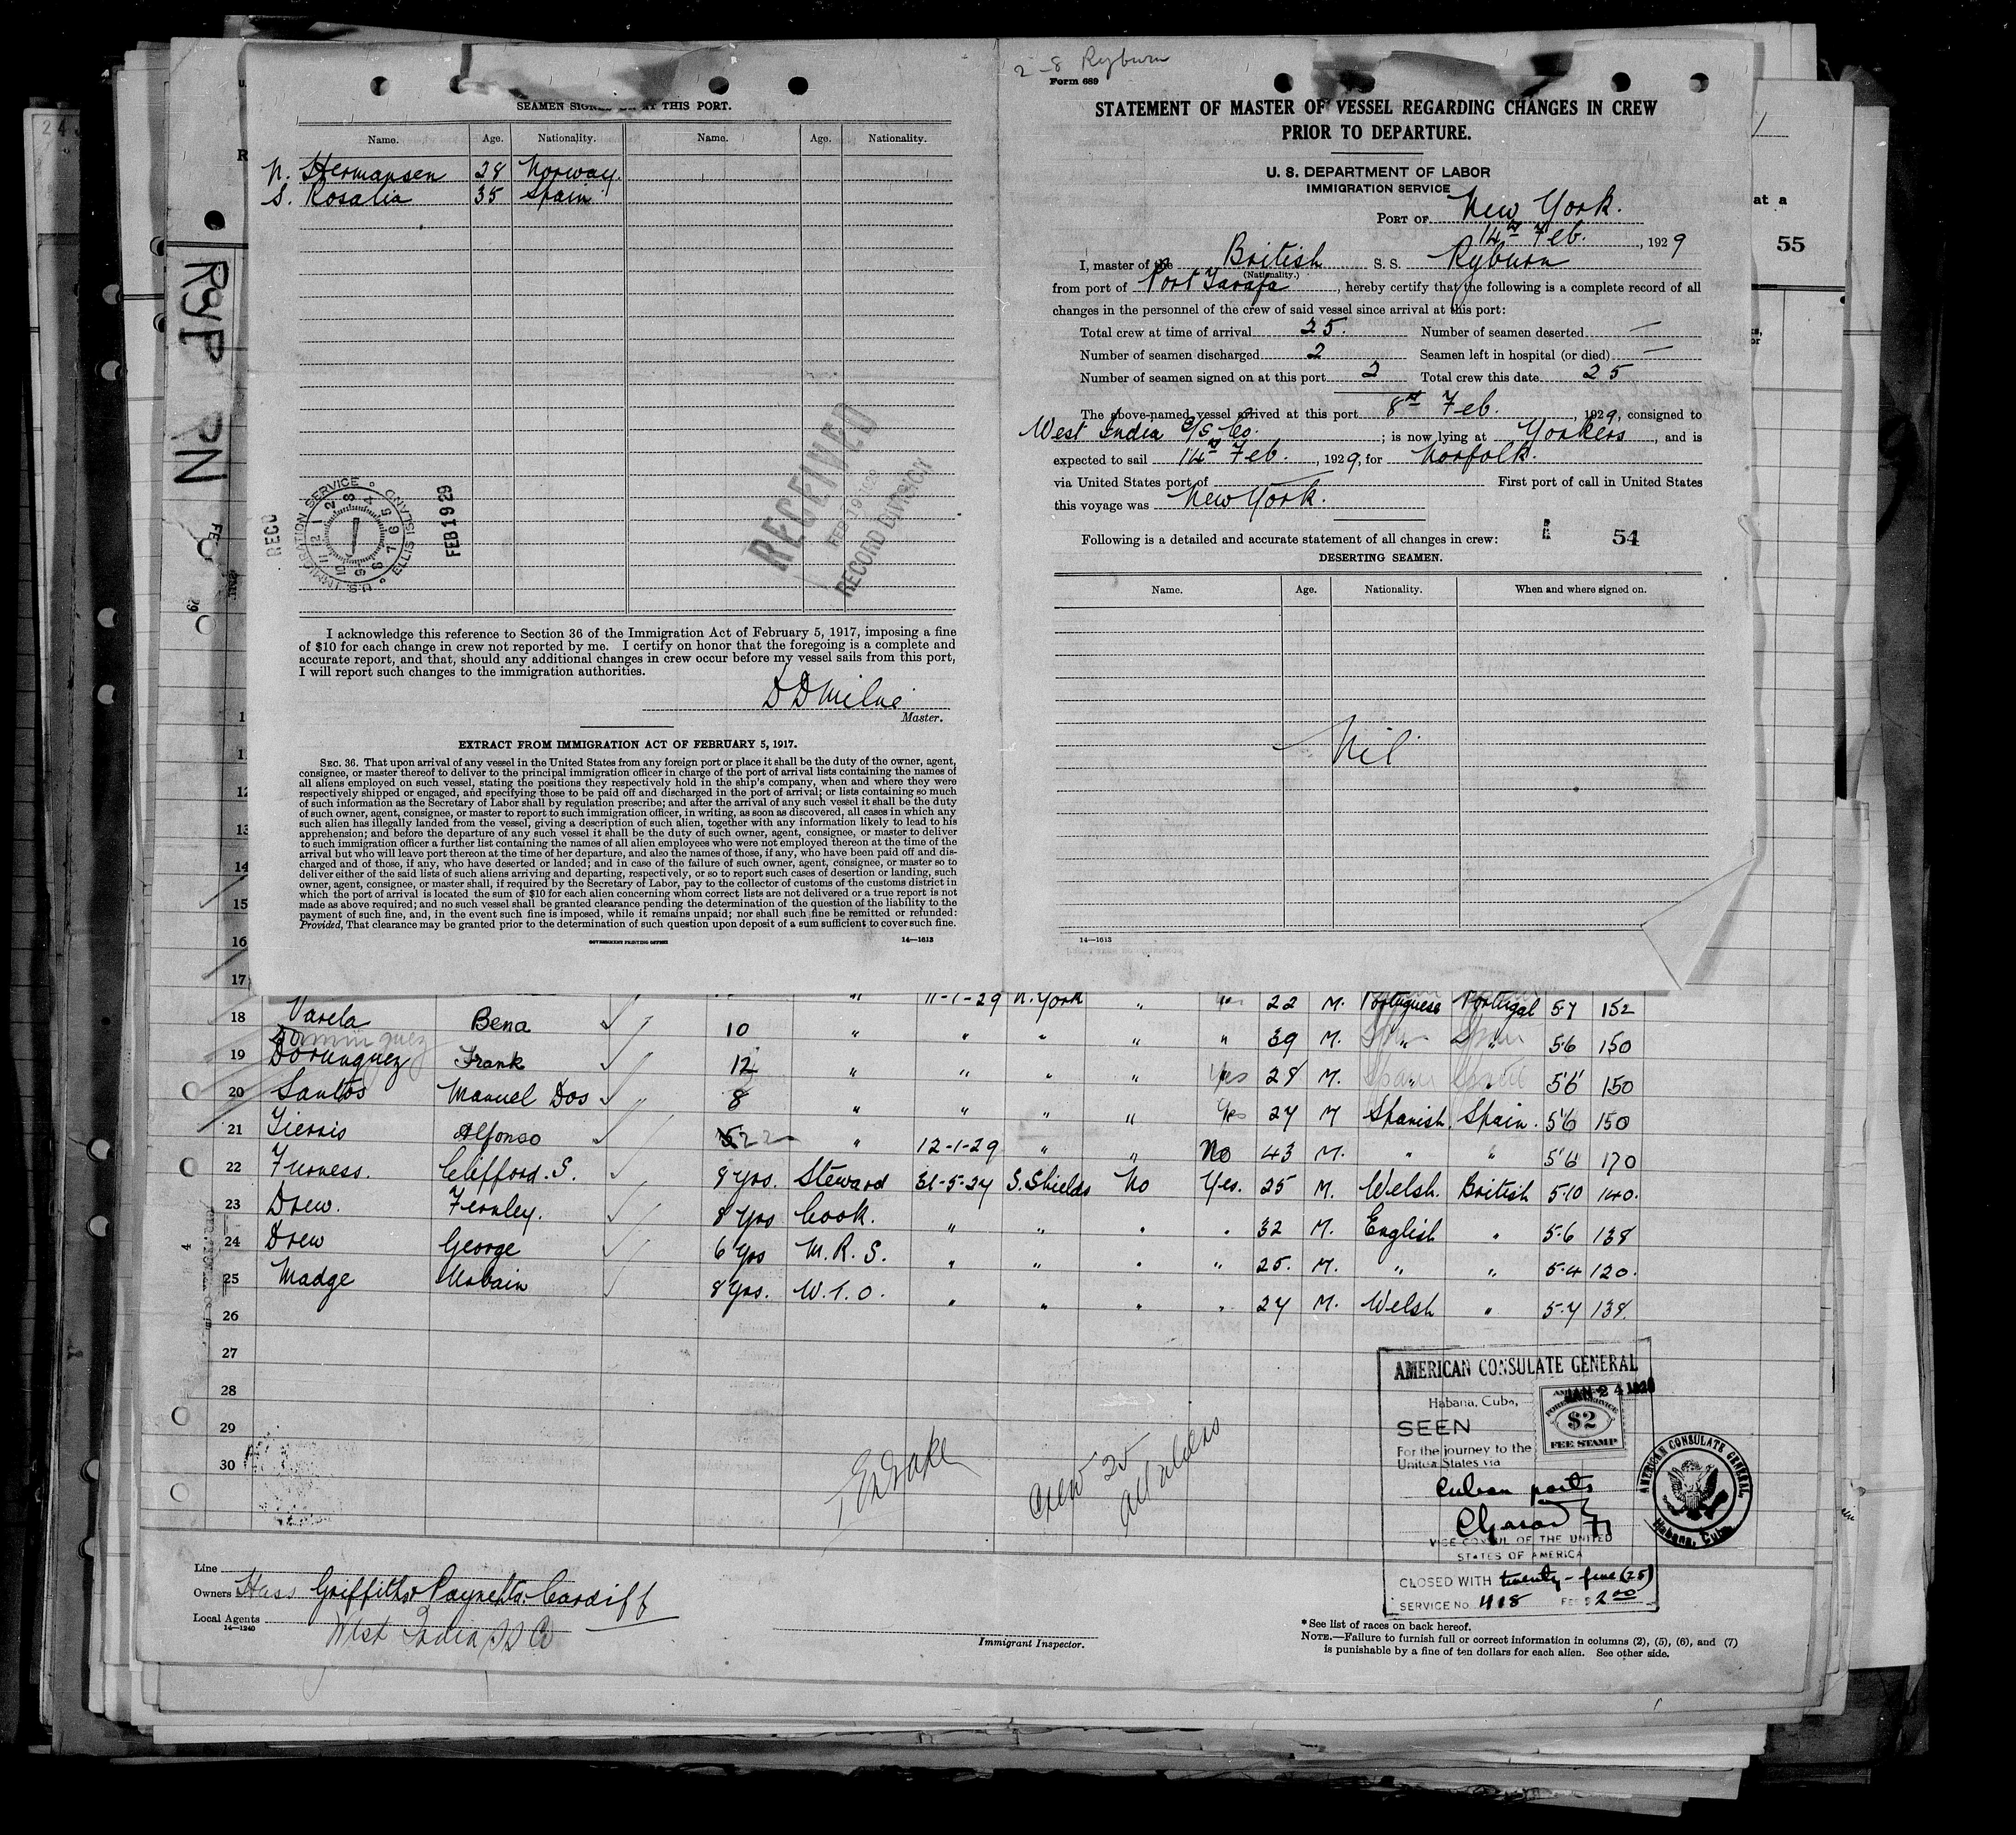 SEAMEN SIGNED ON AT THIS PORT.
Name. Age. Nationality. Name. Age. Nationality.
N. Hermansen 28 Norway.
S. Rosalia 35 Spain
RECEIVED
FEB 19
RECORD DIVISION
U.S. IMMIGRATION SERVICE ELLIS ISLAND
FEB 19 29
I acknowledge this reference to Section 36 of the Immigration Act of February 5, 1917, imposing a fine
of $10 for each change in crew not reported by me. I certify on honor that the foregoing is a complete and
accurate report, and that, should any additional changes in crew occur before my vessel sails from this port,
I will report such changes to the immigration authorities.
D D Milne
Master.
EXTRACT FROM IMMIGRATION ACT OF FEBRUARY 5, 1917.
SEC. 36. That upon arrival of any vessel in the United States from any foreign port or place it shall be the duty of the owner, agent,
consignee, or master thereof to deliver to the principal immigration officer in charge of the port of arrival lists containing the names of
all aliens employed on such vessel, stating the positions they respectively hold in the ship's company, when and where they were
respectively shipped or engaged, and specifying those to be paid off and discharged in the port of arrival; or lists containing so much
of such information as the Secretary of Labor shall by regulation prescribe; and after the arrival of any such vessel it shall be the duty
of such owner, agent, consignee, or master to report to such immigration officer, in writing, as soon as discovered, all cases in which any
such alien has illegally landed from the vessel, giving a description of such alien, together with any information likely to lead to his
apprehension; and before the departure of any such vessel it shall be the duty of such owner, agent, consignee, or master to deliver
to such immigration officer a further list containing the names of all alien employees who were not employed thereon at the time of the
arrival but who will leave port thereon at the time of her departure, and also the names of those, if any, who have been paid off and dis-
charged and of those, if any, who have deserted or landed; and in case of the failure of such owner, agent, consignee, or master so to
deliver either of the said lists of such aliens arriving and departing, respectively, or so to report such cases of desertion or landing, such
owner, agent, consignee, or master shall, if required by the Secretary of Labor, pay to the collector of customs of the customs district in
which the port of arrival is located the sum of $10 for each alien concerning whom correct lists are not delivered or a true report is not
made as above required; and no such vessel shall be granted clearance pending the determination of the question of the liability to the
payment of such fine, and, in the event such fine is imposed, while it remains unpaid; nor shall such fine be remitted or refunded:
Provided, That clearance may be granted prior to the determination of such question upon deposit of a sum sufficient to cover such fine.
GOVERNMENT PRINTING OFFICE 14—1613
2-8 Ryburn
Form 689
STATEMENT OF MASTER OF VESSEL REGARDING CHANGES IN CREW
PRIOR TO DEPARTURE.
U. S. DEPARTMENT OF LABOR
IMMIGRATION SERVICE
PORT OF New York.
14th Feb. , 1929
I, master of the British S. S. Ryburn
(Nationality.)
from port of Port Tarafa , hereby certify that the following is a complete record of all
changes in the personnel of the crew of said vessel since arrival at this port:
Total crew at time of arrival 25. Number of seamen deserted —
Number of seamen discharged 2 Seamen left in hospital (or died) —
Number of seamen signed on at this port 2 Total crew this date 25
The above-named vessel arrived at this port 8th Feb. , 1929, consigned to
West India S/S Co. ; is now lying at Yonkers , and is
expected to sail 14th Feb. , 1929, for Norfolk.
via United States port of First port of call in United States
this voyage was New York.
Following is a detailed and accurate statement of all changes in crew: 54
DESERTING SEAMEN.
Name. Age. Nationality. When and where signed on.
Nil
14—1613
at a
55
12
13
14
15
16
17 " 11-1-29 N. York " Yes 22 M. Portuguese Portugal 5-7 152
18 Varela Bena 10 " " " " " 39 M. " " 5-6 150
Dominguez
19 Dorunquez Frank 12 " " " " Yes 28 M. " " 5'6 150
20 Santos Manuel Dos 8 " " " " Yes 27 M Spanish. Spain. 5'6 150
21 Alfonso " 12-1-29 " " No 43 M. " " 5'6 170
22 Furness. Clifford. S. 8 yrs. Steward 31-5-27 S. Shields No Yes. 25 M. Welsh. British 5-10 140.
23 Drew. Fernley. 8 yrs Cook. " " " " 32 M. English " 5-6 138
24 Drew George 6 yrs M. R. S. " " " " 25. M. " " 5-4 120.
25 Madge 8 yrs. W. T. O. " " " " 27 M. Welsh " 5-7 138.
26
27
28
29
30
Crew 25
all aliens
AMERICAN CONSULATE GENERAL
Habana, Cuba, JAN 24 1929
SEEN
For the journey to the
United States via
Cuban ports
VICE CONSUL OF THE UNITED
STATES OF AMERICA
CLOSED WITH twenty-five (25)
SERVICE NO. 418 FEE $ 2.00
AMERICAN FOREIGN SERVICE $2 FEE STAMP
AMERICAN CONSULATE GENERAL Habana, Cuba.
Line
Owners Griffiths & Payne Ltd. Cardiff
Local Agents West India SS Co
14—1240
Immigrant Inspector.
*See list of races on back hereof.
NOTE.—Failure to furnish full or correct information in columns (2), (5), (6), and (7)
is punishable by a fine of ten dollars for each alien. See other side.